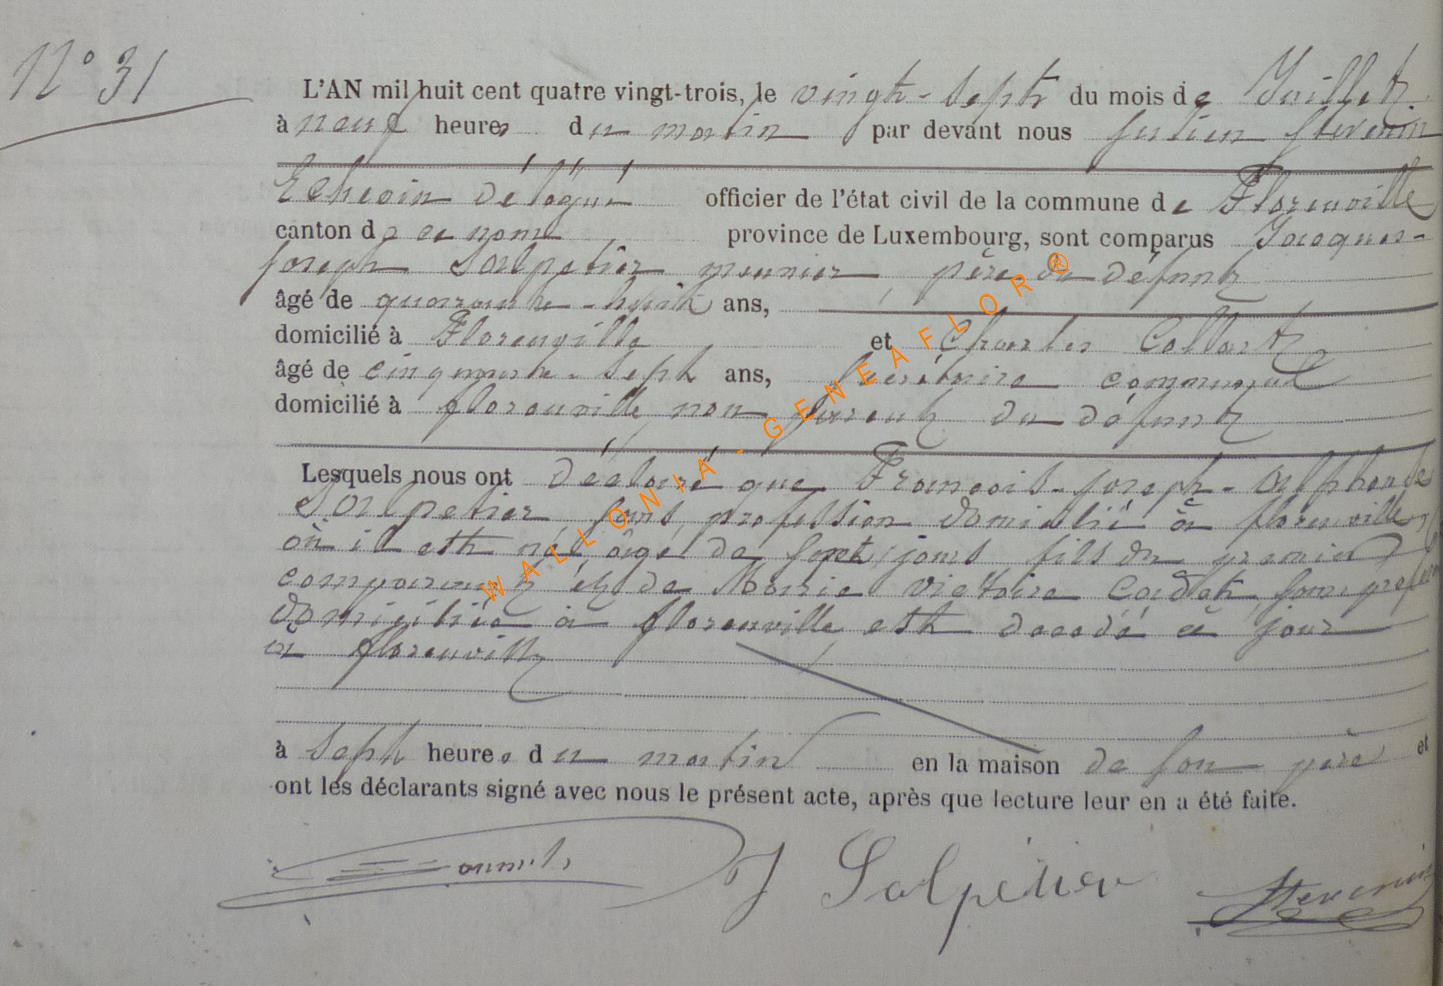 N° 31
L'AN mil huit cent quatre vingt-trois, le vingt-sept du mois de Juillet
à neuf heures du matin par devant nous Julien Stevenin
Echevin délégué officier de l'état civil de la commune de Florenville
canton de ce nom province de Luxembourg, sont comparus Jacques-
Joseph Salpetier meunier, père du défunt
âgé de quarante-huit ans,
domicilié à Florenville et Charles Collart
âgé de cinquante-sept ans, secrétaire communal
domicilié à florenville non parent du défunt
Lesquels nous ont déclaré que François-Joseph-Alphonse
Salpetier, sans profession domicilié à florenville,
où il est né, âgé de sept jours fils du premier
comparant et de Marie Victoire Cadet, sans
domiciliée à florenville est décédé ce jour
à florenville
à sept heures du matin en la maison de son père et
ont les déclarants signé avec nous le présent acte, après que lecture leur en a été faite.
J Salpétier Stevenin
WALLONIA - GENEAFLOR ®